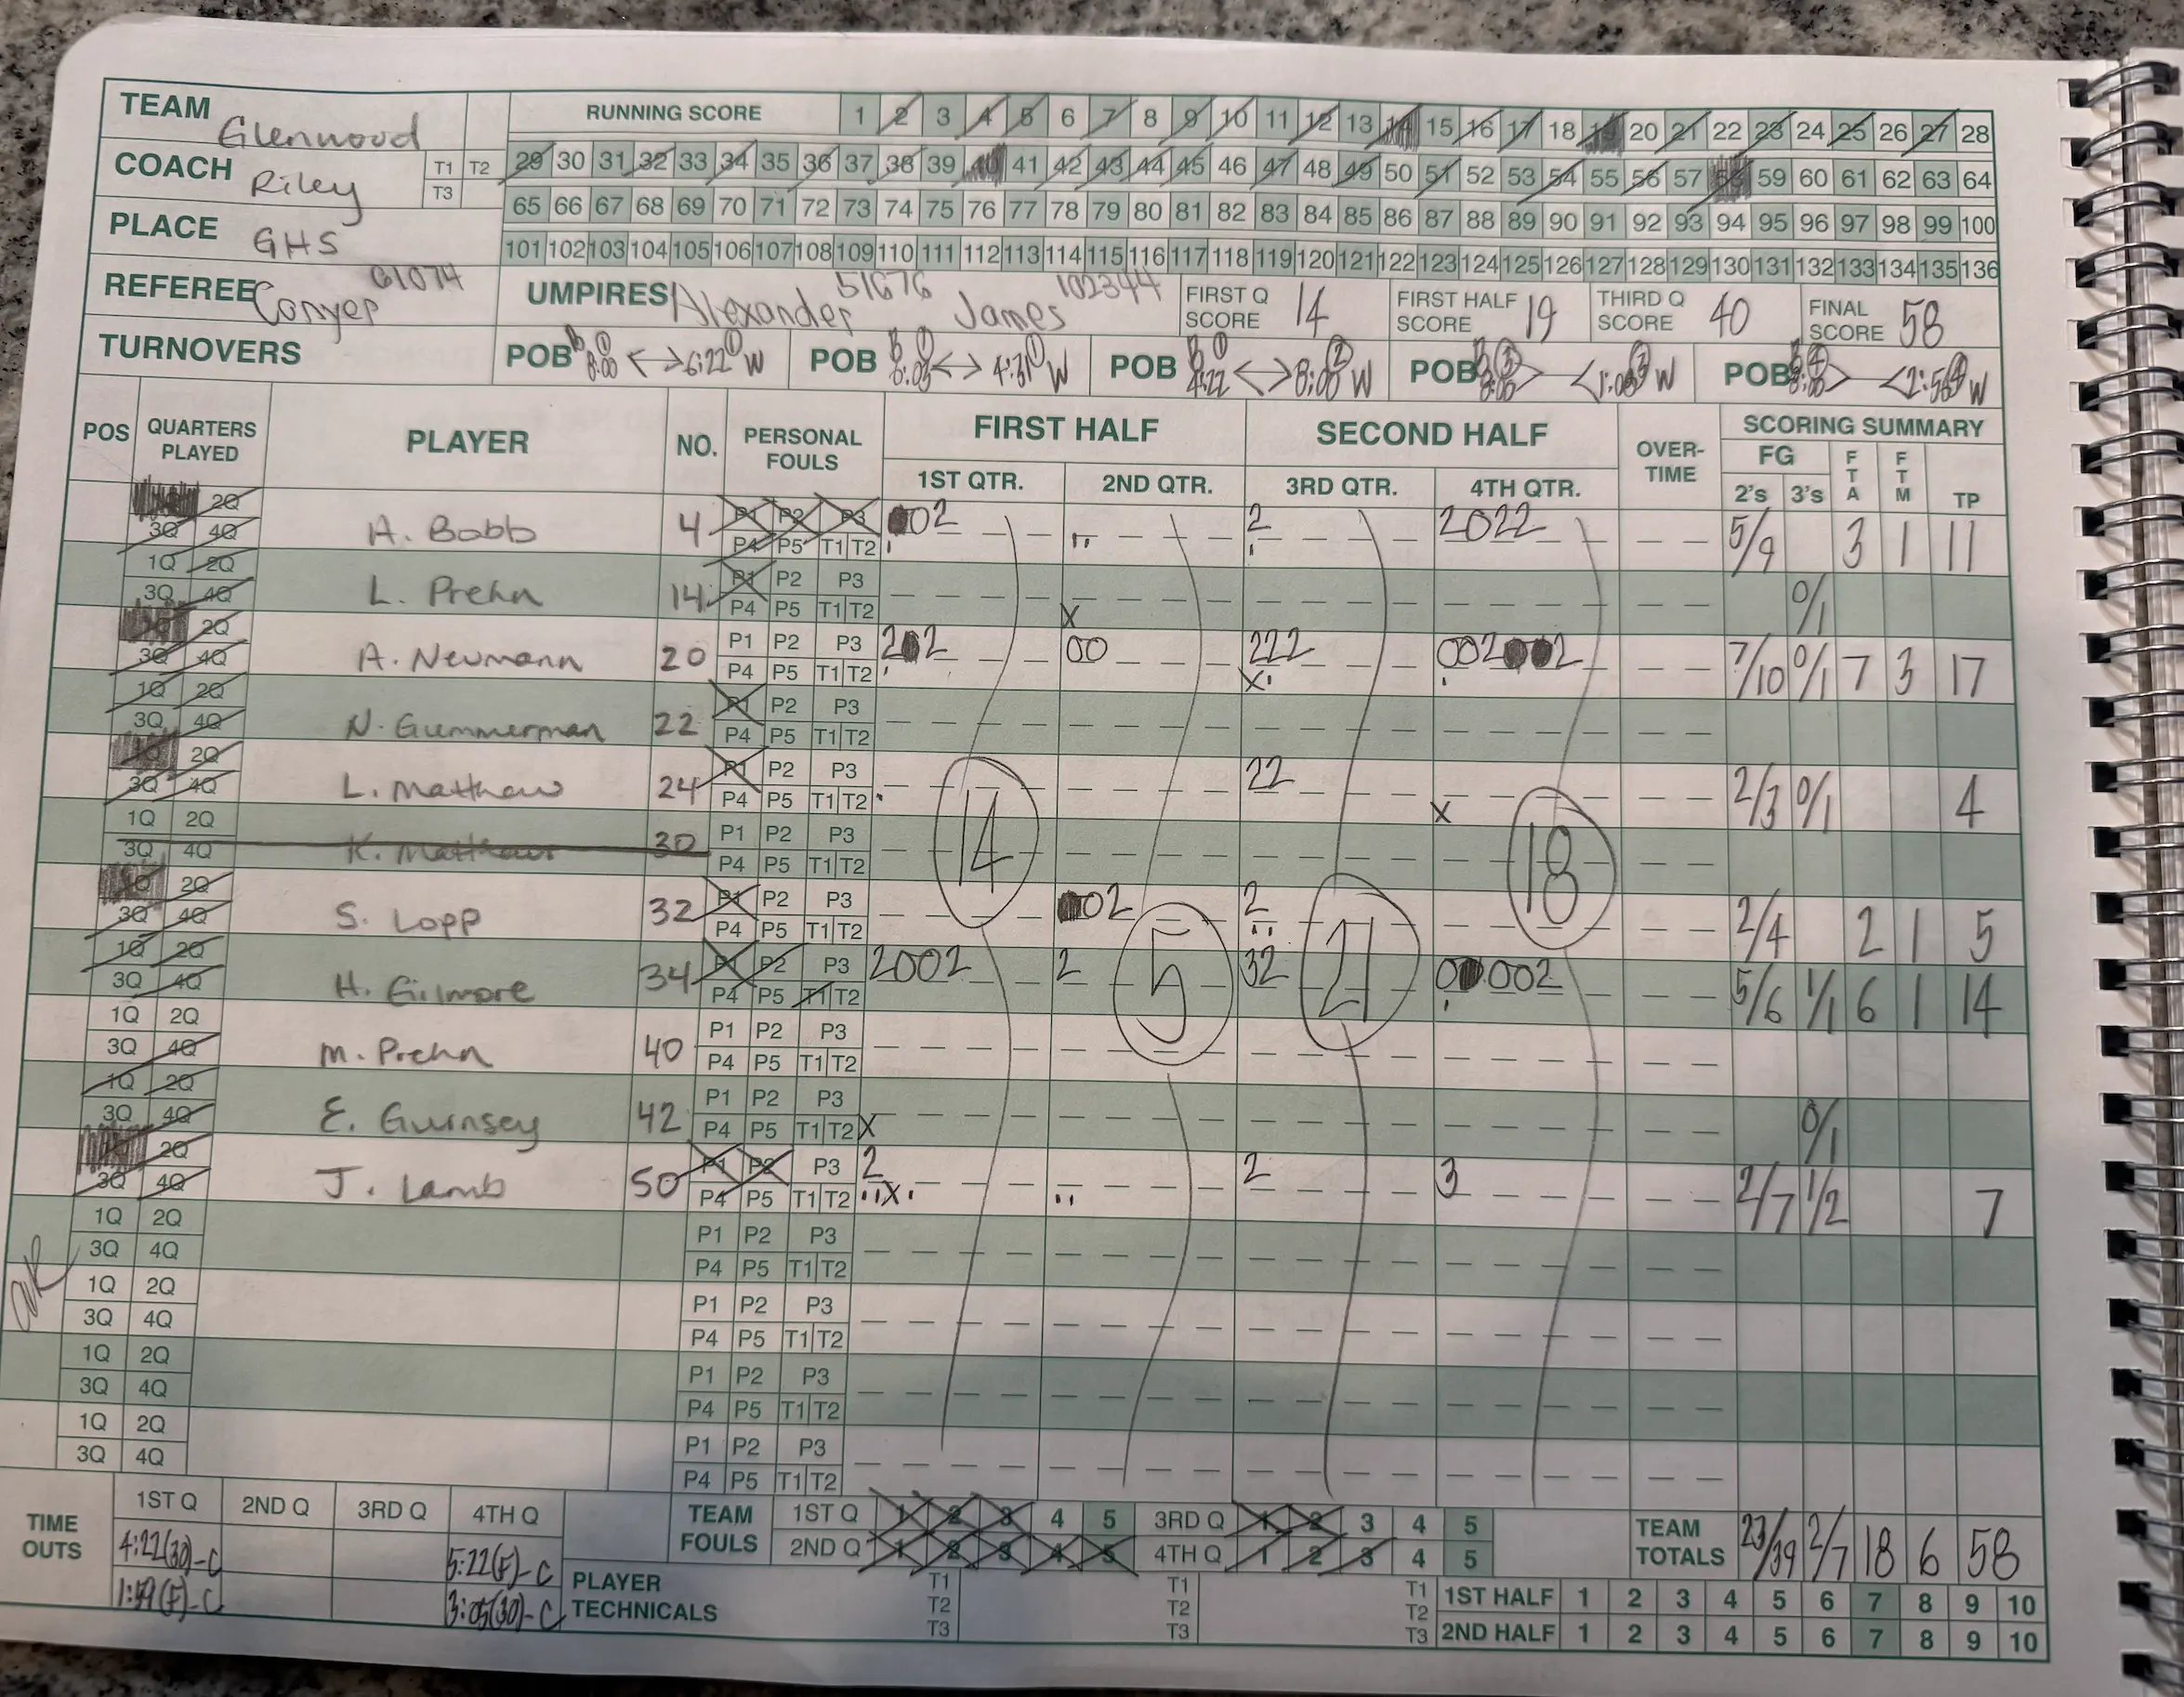 TEAM Glenwood
RUNNING SCORE 1 2 3 4 5 6 7 8 9 10 11 12 13 14 15 16 17 18 19 20 21 22 23 24 25 26 27 28
COACH Riley T1 T2 T3
29 30 31 32 33 34 35 36 37 38 39 40 41 42 43 44 45 46 47 48 49 50 51 52 53 54 55 56 57 58 59 60 61 62 63 64
65 66 67 68 69 70 71 72 73 74 75 76 77 78 79 80 81 82 83 84 85 86 87 88 89 90 91 92 93 94 95 96 97 98 99 100
PLACE GHS
101 102 103 104 105 106 107 108 109 110 111 112 113 114 115 116 117 118 119 120 121 122 123 124 125 126 127 128 129 130 131 132 133 134 135 136
REFEREE Conyer 61074 UMPIRES Alexander 51676 James 102344 FIRST Q SCORE 14 FIRST HALF SCORE 19 THIRD Q SCORE 40 FINAL SCORE 58
TURNOVERS POB B 8:00 1 6:22 1 W POB B 1 4:31 1 W POB B 1 4:22 8:00 2 W POB B 3 8:00 3 W POB B 4 8:00 4 W
POS QUARTERS PLAYED PLAYER NO. PERSONAL FOULS FIRST HALF SECOND HALF OVER-TIME SCORING SUMMARY
1ST QTR. 2ND QTR. 3RD QTR. 4TH QTR. FG 2's 3's FTA FTM TP
2Q 3Q 4Q A. Bobb 4 P1 P2 P3 P4 P5 T1 T2 02 2 2022 5/9 3 1 11
1Q 2Q 3Q 4Q L. Prehn 14 P1 P2 P3 P4 P5 T1 T2 X 0/1
2Q 3Q 4Q A. Neumann 20 P1 P2 P3 P4 P5 T1 T2 2 2 00 222 X 002 2 7/10 0/1 7 3 17
1Q 2Q 3Q 4Q N. Gummerman 22 P1 P2 P3 P4 P5 T1 T2
1Q 2Q 3Q 4Q L. Matthew 24 P1 P2 P3 P4 P5 T1 T2 22 X 2/3 0/1 4
1Q 2Q 3Q 4Q K. Matthew 30 P1 P2 P3 P4 P5 T1 T2
14 18
1Q 2Q 3Q 4Q S. Lopp 32 P1 P2 P3 P4 P5 T1 T2 02 2 2/4 2 1 5
1Q 2Q 3Q 4Q H. Gilmore 34 P1 P2 P3 P4 P5 T1 T2 2002 2 32 0 002 5/6 1/1 6 1 14
5 21
1Q 2Q 3Q 4Q M. Prehn 40 P1 P2 P3 P4 P5 T1 T2
1Q 2Q 3Q 4Q E. Guinsey 42 P1 P2 P3 P4 P5 T1 T2 X 0/1
2Q 3Q 4Q J. Lamb 50 P1 P2 P3 P4 P5 T1 T2 2 X 2 3 2/7 1/2 7
1Q 2Q 3Q 4Q P1 P2 P3 P4 P5 T1 T2
1Q 2Q 3Q 4Q P1 P2 P3 P4 P5 T1 T2
1Q 2Q 3Q 4Q P1 P2 P3 P4 P5 T1 T2
1Q 2Q 3Q 4Q P1 P2 P3 P4 P5 T1 T2
TIME OUTS 1ST Q 2ND Q 3RD Q 4TH Q
4:22(30)-C 5:22(F)-C
1:59(F)-C 3:05(30)-C
TEAM FOULS 1ST Q 1 2 3 4 5 3RD Q 1 2 3 4 5
2ND Q 1 2 3 4 5 4TH Q 1 2 3 4 5
TEAM TOTALS 23/39 2/7 18 6 58
PLAYER TECHNICALS T1 T2 T3 T1 T2 T3 T1 T2 T3
1ST HALF 1 2 3 4 5 6 7 8 9 10
2ND HALF 1 2 3 4 5 6 7 8 9 10